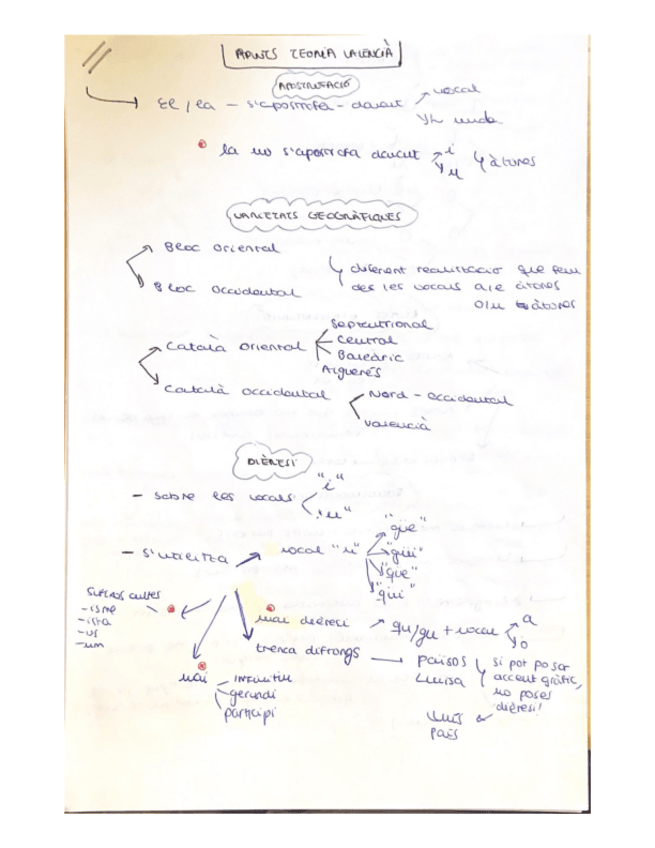 APUNTS TEORIA VALENCIÀ
APOSTROFACIÓ
El / La - s'apostrofa - davant vocal
h muda
la no s'apostrofa davant i
u
àtones
VARIETATS GEOGRÀFIQUES
Bloc oriental
Bloc occidental
diferent realització que fem
des les vocals a/e àtones
o/u àtones
Català oriental
Septentrional
Central
Balearic
Alguerés
Català occidental
Nord-occidental
Valencià
DIÈRESI
- sobre les vocals
"i"
"u"
- s'utilitza
vocal "u"
"güe"
"güi"
"qüe"
"qüi"
Sufixos cultes
-isme
-ista
-us
-um
mai dièresi
qu/gu + vocal
a
o
trenca diftongs
països
Lluïsa
si pot posar
accent gràfic,
no poses
dièresi!
Lluís
país
mai
infinitiu
gerundi
participi